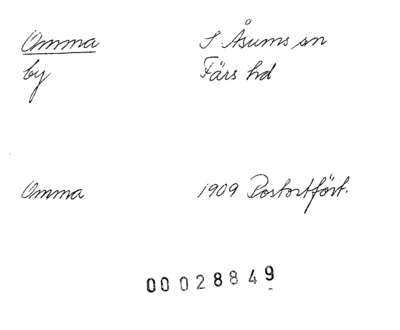 Omma S Åsums sn
by Färs hd
Omma 1909 Postortfört.
00028849